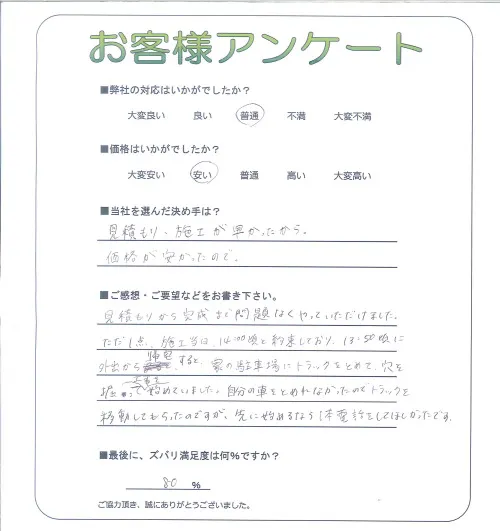 お客様アンケート
■弊社の対応はいかがでしたか？
大変良い 良い 普通 不満 大変不満
■価格はいかがでしたか？
大変安い 安い 普通 高い 大変高い
■当社を選んだ決め手は？
見積もり、施工が早かったから。
価格が安かったので。
■ご感想・ご要望などをお書き下さい。
見積もりから完成まで問題なくやっていただけました。
ただ1点、施工当日、14:00頃と約束しており、13:50頃に
外出から帰宅すると、家の駐車場にトラックをとめて、穴を
掘って始めていました。自分の車をとめれなかったのでトラックを
移動してもらったのですが、先に始めるなら一本電話をしてほしかったです。
■最後に、ズバリ満足度は何％ですか？
80 ％
ご協力頂き、誠にありがとうございました。